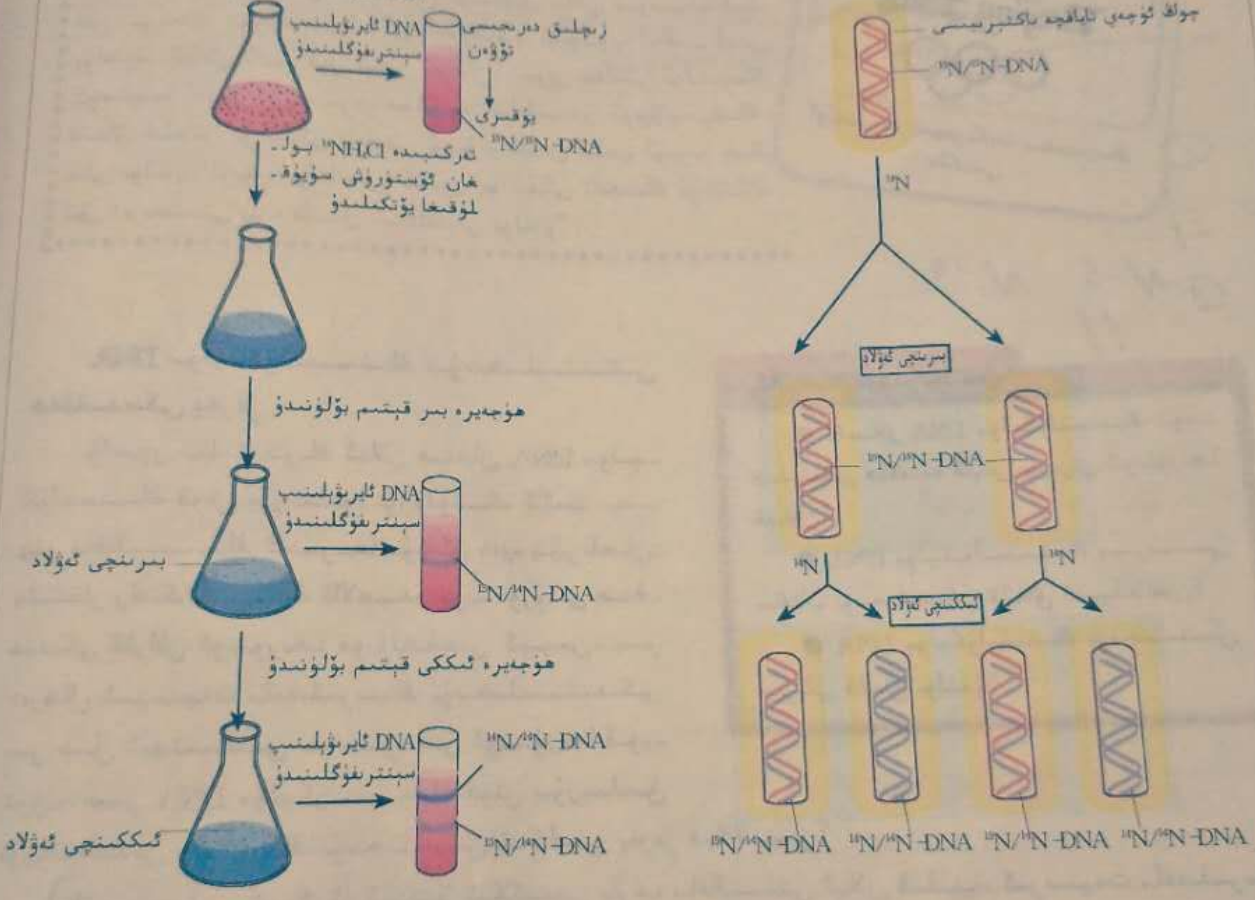 DNA ئايرىۋېلىنىپ
سېنترىفۇگىلىنىدۇ
زىچلىق دەرىجىسى
تۆۋەن
يۇقىرى
¹⁵N/¹⁵N-DNA
تەركىبىدە ¹⁴NH₄Cl بول-
غان ئۆستۈرۈش سۇيۇق-
لۇقىغا يۆتكىلىدۇ
ھۈجەيرە بىر قېتىم بۆلۈنىدۇ
DNA ئايرىۋېلىنىپ
سېنترىفۇگىلىنىدۇ
بىرىنچى ئەۋلاد
¹⁵N/¹⁴N-DNA
ھۈجەيرە ئىككى قېتىم بۆلۈنىدۇ
DNA ئايرىۋېلىنىپ
سېنترىفۇگىلىنىدۇ
¹⁴N/¹⁴N-DNA
¹⁵N/¹⁴N-DNA
ئىككىنچى ئەۋلاد
چوڭ ئۈچەي تاياقچە باكتېرىيىسى
¹⁵N/¹⁵N-DNA
¹⁴N
بىرىنچى ئەۋلاد
¹⁵N/¹⁴N-DNA
¹⁴N
¹⁴N
ئىككىنچى ئەۋلاد
¹⁵N/¹⁴N-DNA
¹⁴N/¹⁴N-DNA
¹⁵N/¹⁴N-DNA
¹⁴N/¹⁴N-DNA